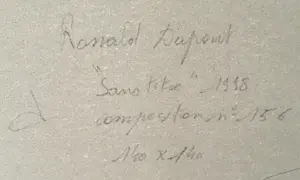 Ronald Dupont
"Sans titre" 1998
d
composition n° 156
140 x 140